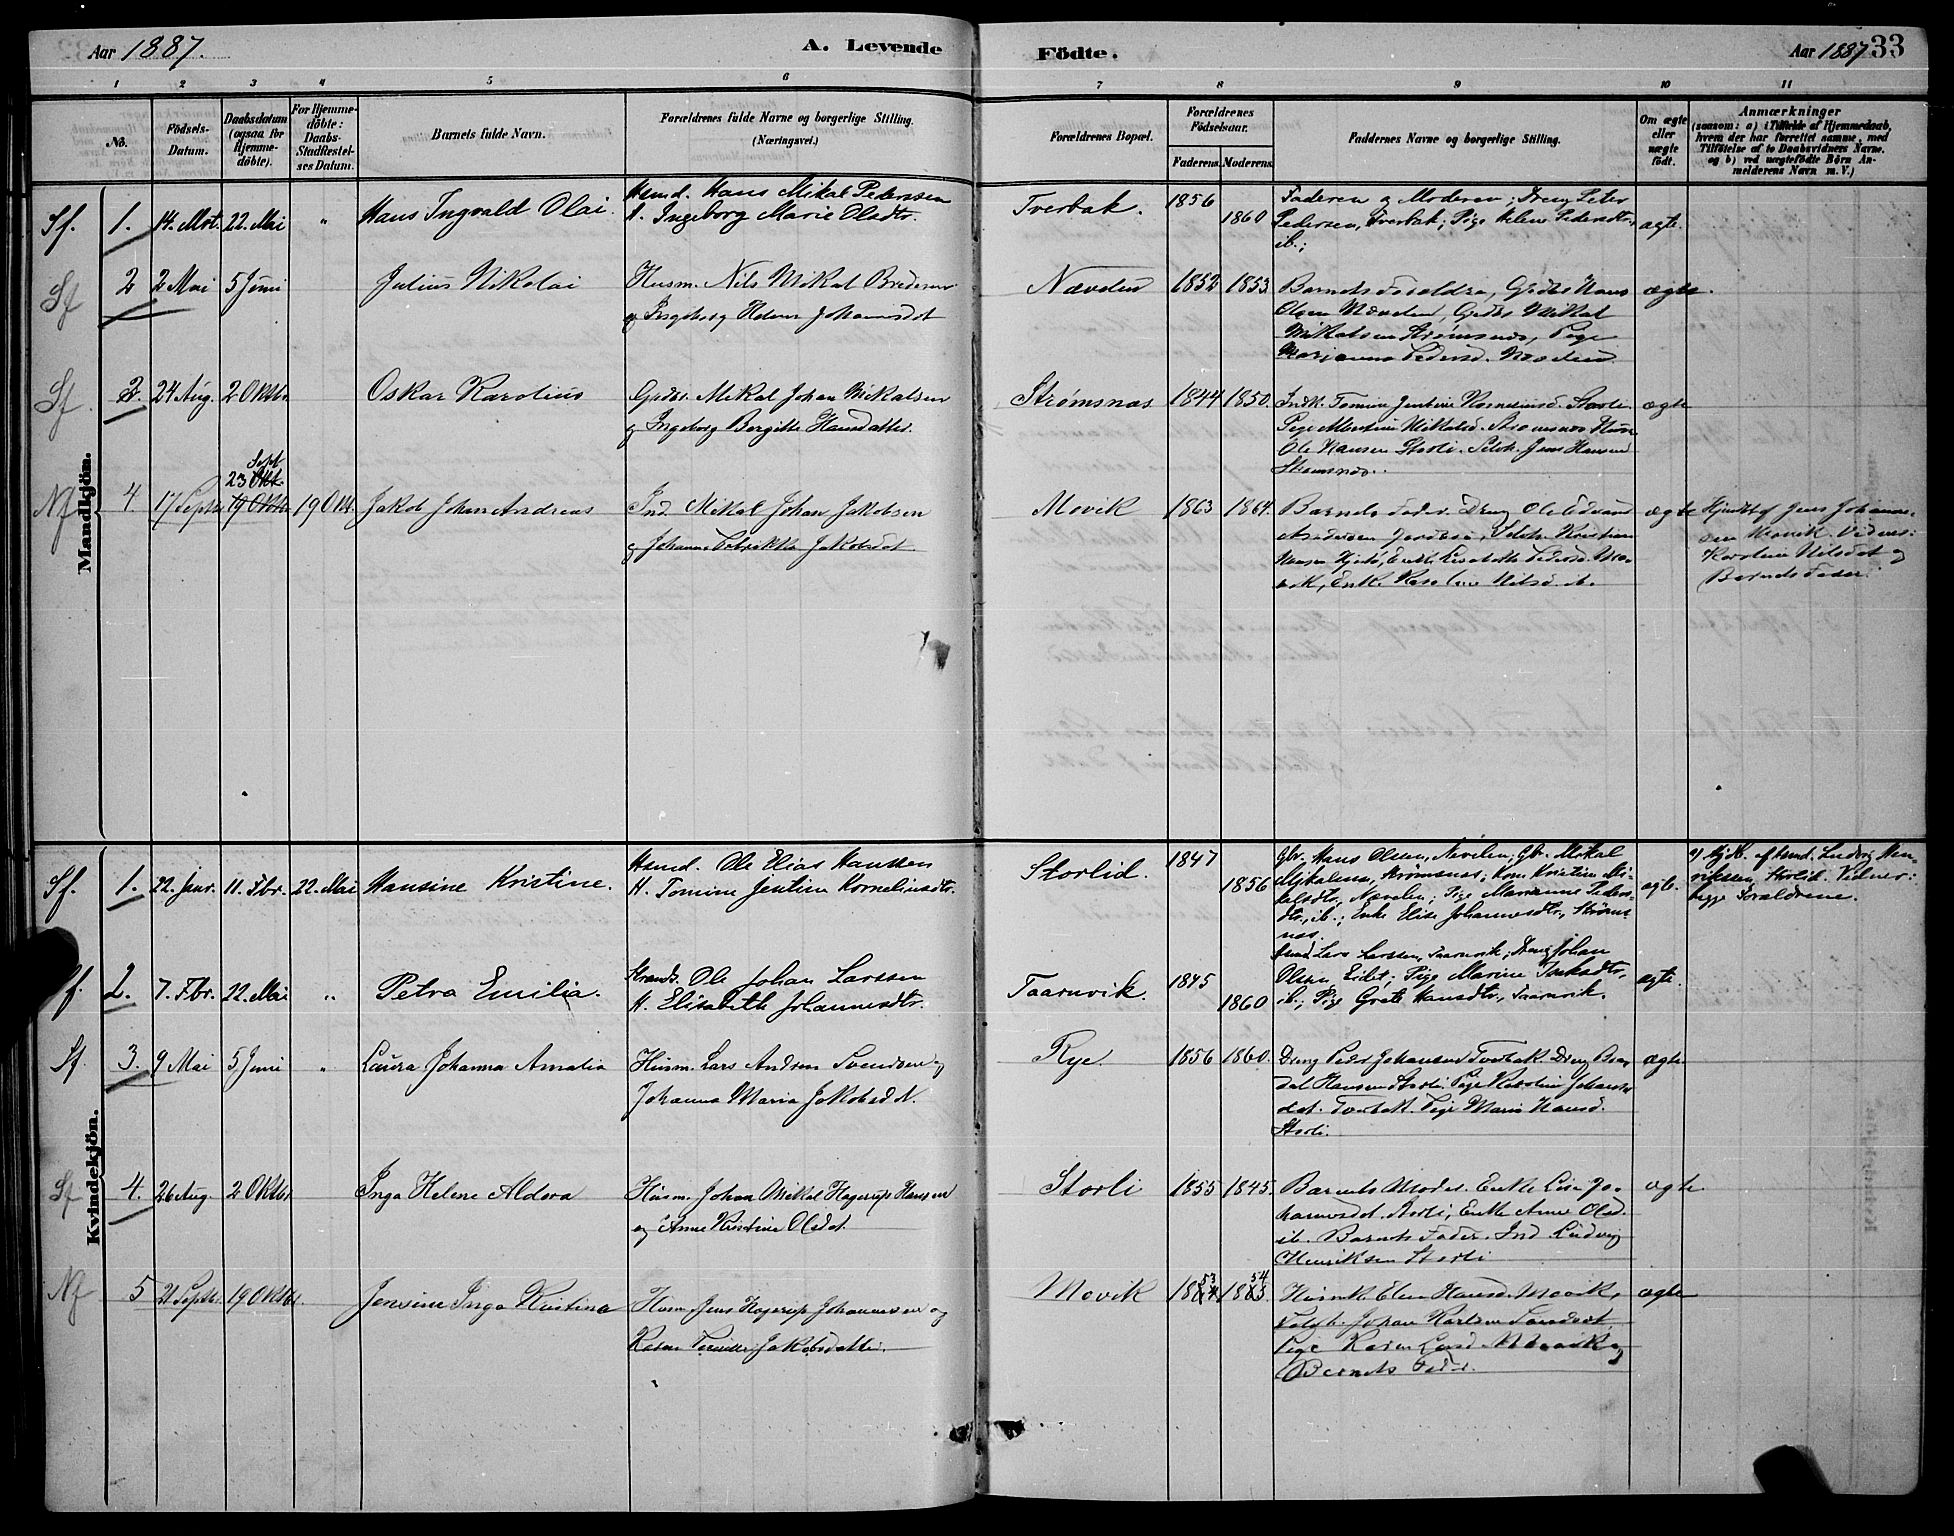 Aar 1887.
A. Levende
Födte.
Aar 1887
33
1 2 3 4 5 6 7 8 9 10 11
No.
Födsels-Datum.
Daabsdatum (ogsaa for Hjemme-döbte).
For Hjemme-döbte: Daabs Stadfæstel-ses Datum.
Barnets fulde Navn.
Forældrenes fulde Navne og borgerlige Stilling. (Næringsvei.)
Forældrenes Bopæl.
Forældrenes Födselsaar.
Faderens. Moderens.
Faddernes Navne og borgerlige Stilling.
Om ægte eller uægte födt.
Anmærkninger
(saasom: a) i Tilfælde af Hjemmedaab, hvem der har forrettet samme, med Tilföielse af to Daabsvidners Navne. og b) ved uægtefödte Börn An-melderens Navn m. V.)
Mandkjön.
Sf. 1. 14. Mrt. 22. Mai " Hans Ingvald Olai.
Hsmd. Hans Mikal Pederssen
H. Ingeborg Marie Olsdtr.
Tverbak. 1856 1860
Faderen og Moderen; Dreng Peter
Pedersen, Tverbak; Pige Pedersdtr.,
ib.;
ægte.
Sf 2 2 Mai 5 Juni Julius Nikolai
Husm. Nils Mikal
og Ingeborg Helene Johannesdot
Nævelen 1852 1853
Barnets Forældre, Gdbr. Hans
Olsen Nævelen, Gdbr. Mikal
Mikalsen Strømsnæs, Pige
Marianna Pedersd. Nævelen
ægte.
Sf. 3 24 Aug. 2 Oktbr. Oskar Karolius
Gdbr. Mikal Johan Mikalsen
og Ingeborg Bergitte Hansdatter.
Strømsnæs 1844 1850.
Indk. Tomine Jentine Kornelinsd. Storli.
Pige Albertine Strømsnæs Husm
Ole Hansen Storli. Jens Hansen
Strømsnæs.
ægte
Nf 4 17 Septbr. 23 Sept. 19 Oktbr. 19 Okt. Jakob Johan Andreas
Ind. Mikal Johan Jakobsen
og Johanna Fredrikke Jakobsdot
Movik 1863 1864.
Barnets Fader. Dreng Ole Edvard
Andersen Kristian
Hansen Enke Elisabeth Pedersd. Mo-
vik, Enke Karoline Nilsd. ib.
ægte
Hjmdbt af Jens Johanne-
sen Movik. Vidner:
Karoline Nilsdot og
Barnets Fader.
Kvindekjön.
Sf. 1. 22. Janr. 11. Fbr. 22. Mai Hansine Kristine.
Hsmd. Ole Elias Hanssen
H. Tomine Jentine Kornelinsdtr.
Storlid. 1847 1856
Gbr. Hans Olssen, Nævelen; Gbr. Mikal
Mikalssen, Strømsnæs; Kone Kristine Mi-
kalsdtr., Nævelen; Pige Marianne Peders-
dtr., ib.; Enke Elise Johannesdtr., Strøms-
næs.
ægte.
a) Hj.db. af Hsmd. Ludvig Hen-
riksen, Storlid. Vidner:
begge Forældrene.
Sf. 2. 7. Fbr. 22. Mai " Petra Emilia.
Strands. Ole Johan Larssen
H. Elisabeth Johannesdtr.
Taarnvik. 1845 1860
Hsmd. Lars Larssen, Taarnvik; Dreng Johan
Olsen, Eidet; Pige Marine
ib.; Pige Grete Hansdtr., Taarnvik.
ægte.
Sf. 3. 9 Mai 5 Juni " Laura Johanna Amalia
Husm. Lars Andreas Svendsen og
Johanna Maria Jakobsdot.
Rye. 1856 1860.
Dreng Peder Johansen Tverbak. Dreng
Hansen Storli. Pige Karoline Johans-
dot. Tverbak. Pige Maria Hansd.
Storli.
ægte.
Sf 4. 26 Aug. 2 Oktbr Inga Helene Aldora
Husm. Johan Mikal Hagerup Hansen
og Anne Kristine Olsdot.
Storli 1855 1845.
Barnets Moder. Enke Lise Jo-
hannesdot. Storli; Enke Anne Olsd.
ib. Barnets Fader. Ind. Ludvig
Henriksen Storli
ægte.
Nf 5 21 Septbr. 19 Oktbr. Jensine Inga Kristina
Husm. Jens Hagerup Johannesen og
Karen Jakobsdatter.
Movik 1853 1854
Husmk. Elen Hansd. Movik,
Johan Karlsen
Pige Karen Larsd. Movik og
Barnets Fader.
ægte